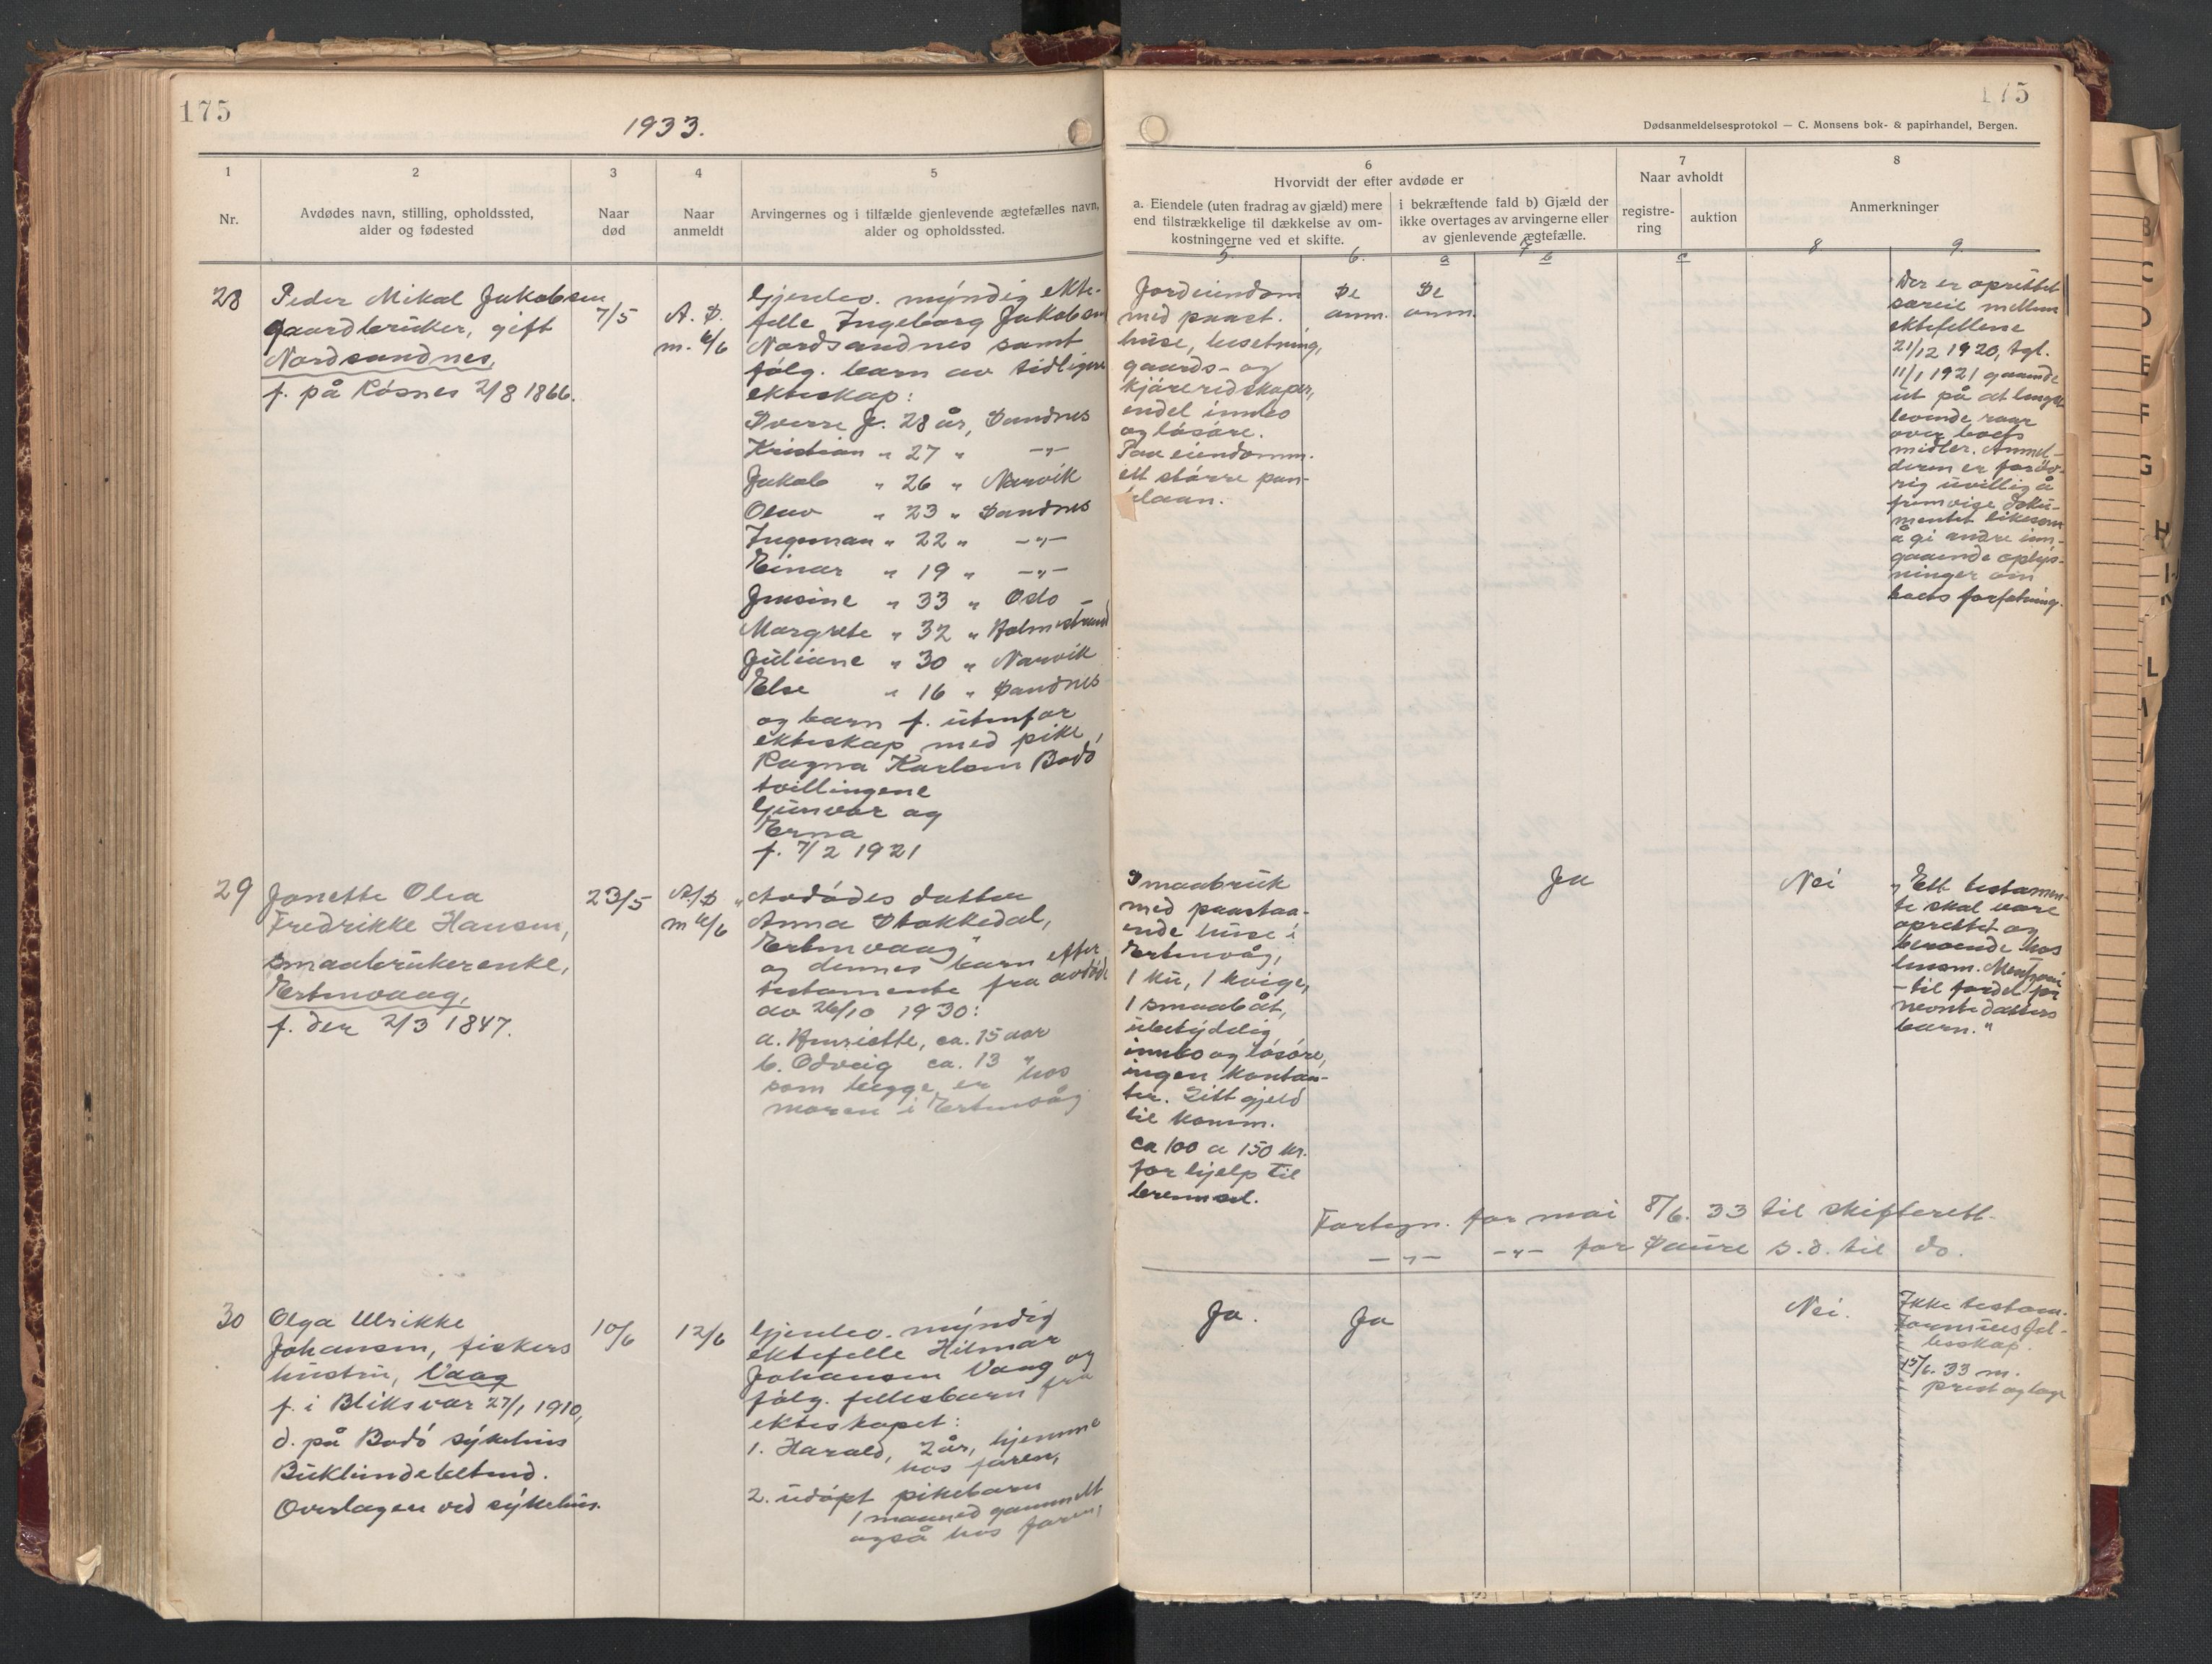 175
1933.
1
2
3
4
5
Nr.
Avdødes navn, stilling, opholdssted,
alder og fødested
Naar
død
Naar
anmeldt
Arvingernes og i tilfælde gjenlevende ægtefælles navn,
alder og opholdssted.
28
Peder Mikal Jakobsen
gaardbruker, gift
Nordsandnes,
f. på Røsnes 2/8 1866.
7/5
A. S.
m. 6/6
Gjenlev. myndig ekte-
felle Ingeborg Jakobsen
Nordsandnes samt
følg. barn av tidligere
ekteskap:
Sverre J. 28 år, Sandnes
Kristian " 27 " -"-
Jakob " 26 " Narvik
Olav " 23 " Sandnes
Ingeman " 22 " -"-
Einar " 19 " -"-
Jensine " 33 " Oslo -
Margrete " 32 " Holmestrand
Juliane " 30 " Narvik
Else " 16 " Sandnes
og barn f. utenfor
ekteskap med pike,
Ragna Karlsen Bodø
tvillingene
Gunvor og
Erna
f. 7/2 1921
29
Janette Olea
Fredrikke Hansen,
smaabrukerenke,
Ertenvaag,
f. der 2/3 1847.
23/5
A/S
m 6/6
"Avdødes datter
Anna Stokkedal,
Ertenvaag"
og dennes barn efter
testamente fra avdøde
av 26/10 1930:
a. Henriette, ca. 15 aar
b. Odveig ca. 13 "
som begge er hos
moren i Ertenvåg
30
Olga Ulrikke
Johansen, fiskers
hustru, Vaag
f. i Bliksvær 27/1 1910,
d. på Bodø sykehus
Buklundebetend.
Overlegen ved sykehus.
10/6
12/6
Gjenlev. myndig
ektefelle Hilmar
Johansen Vaag og
følg. fellesbarn fra
ekteskapet:
1. Harald, 2 år, hjemme
hos faren,
2. udøpt pikebarn
1 maaned gammelt
også hos faren,
175
Dødsanmeldelsesprotokol — C. Monsens bok- & papirhandel, Bergen.
6
Hvorvidt der efter avdøde er
a. Eiendele (uten fradrag av gjæld) mere
end tilstrækkelige til dækkelse av om-
kostningerne ved et skifte.
i bekræftende fald b) Gjæld der
ikke overtages av arvingerne eller
av gjenlevende ægtefælle.
7
Naar avholdt
registre-
ring
auktion
8
Anmerkninger
5.
6.
7
a
b
c
8
9.
Jordeiendom
med paast.
huse, besetning,
gaards- og
kjøreredskaper,
endel innbo
og løsøre.
Paa eiendomm.
ett større pan-
telaan.
Se
anm.
Se
anm.
Der er oprettet
særeie mellem
ektefellene
21/12 1920, tgl.
11/1 1921 gaaende
ut på at lengst
levende raar
over boets
midler. Anmel-
deren er forøv-
rig uvillig å
fremvise doku-
mentet likesom
å gi andre inn-
gaaende oplys-
ninger om
boets forfatning.
Smaabruk
med paastaa-
ende huse i
Ertenvåg,
1 ku, 1 kvige,
1 smaabåt,
ubetydelig
innbo og løsøre,
ingen kontan-
ter. Litt gjeld
til komm.
ca 100 a 150 kr.
for hjelp til
brensel.
Ja
Nei
"Ett testamen-
te skal være
oprettet og
beroende hos
lensm.
- til fordel for
nevnte datters
barn."
Fortegn. for mai 8/6. 33 til skifterett.
-"- -"- for Saure s.d. til do.
Ja.
Ja
Nei.
Ikke testam.
Formuesfel-
lesskap.
15/6. 33 m.
prest og lege
B
C
D
E
F
G
H
L